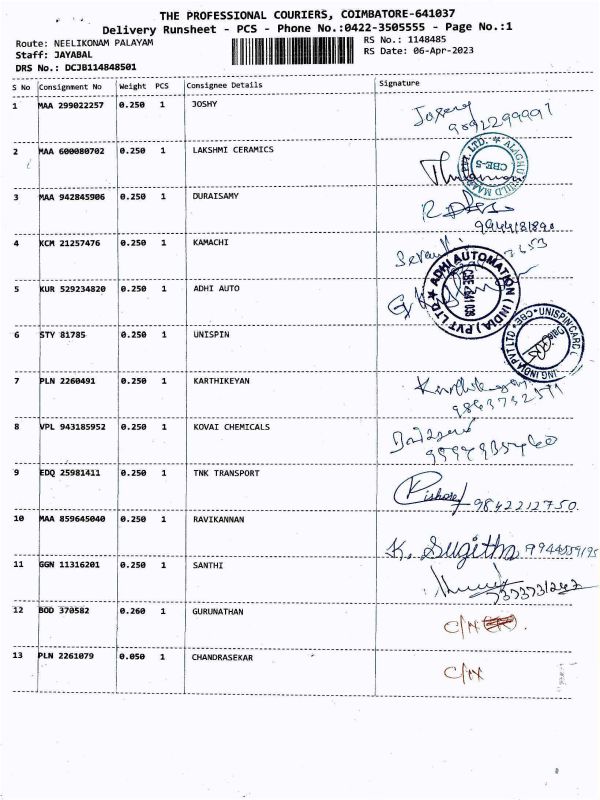 THE PROFESSIONAL COURIERS, COIMBATORE-641037
Delivery Runsheet - PCS - Phone No.:0422-3505555 - Page No.:1
Route: NEELIKONAM PALAYAM
RS No.: 1148485
Staff: JAYABAL
RS Date: 06-Apr-2023
DRS No.: DCJB114848501
S No Consignment No Weight PCS Consignee Details Signature
1 MAA 299022257 0.250 1 JOSHY
2 MAA 600080702 0.250 1 LAKSHMI CERAMICS
CBE-5
3 MAA 942845906 0.250 1 DURAISAMY
9944181890
4 KCM 21257476 0.250 1 KAMACHI
5 KUR 529234820 0.250 1 ADHI AUTO
ADHI AUTOMATION (INDIA) PVT LTD.
CBE-641 039
6 STY 81785 0.250 1 UNISPIN
7 PLN 2260491 0.250 1 KARTHIKEYAN
8 VPL 943185952 0.250 1 KOVAI CHEMICALS
9 EDQ 25981411 0.250 1 TNK TRANSPORT
9842212750.
10 MAA 859645040 0.250 1 RAVIKANNAN
K. Sugitha
11 GGN 11316201 0.250 1 SANTHI
7373731242
12 BOD 370582 0.260 1 GURUNATHAN
C/N
13 PLN 2261079 0.050 1 CHANDRASEKAR
C/N